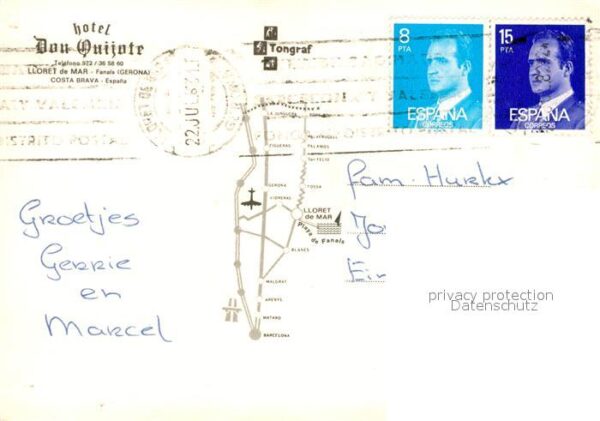 hotel
Don Quijote
Teléfono 972 / 36 58 60
LLORET de MAR - Fanals (GERONA)
COSTA BRAVA - España
Tongraf
8
PTA
ESPAÑA
CORREOS
15
PTA
ESPAÑA
CORREOS
22 JUL
DISTRITO POSTAL
LA JUNQUERA
FIGUERAS
PALAFRUGELL
PALAMOS
GERONA
TOSSA
VIDRERAS
LLORET
de MAR
Playa de Fanals
BLANES
MALGRAT
ARENYS
MATARO
BARCELONA
Groetjes
Gerrie
en
Marcel
Fam. Hurkx
Jo
Ein
privacy protection
Datenschutz